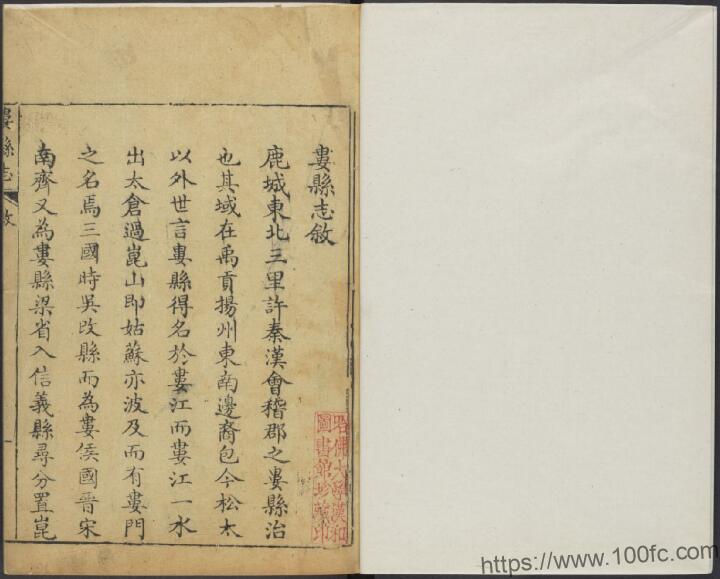 婁縣志敘
鹿城東北三里許秦漢會稽郡之婁縣治
也其域在禹貢揚州東南邊裔包今松太
以外世言婁縣得名於婁江而婁江一水
出太倉過崑山即姑蘇亦波及而有婁門
之名焉三國時吳改縣而為婁侯國晉宋
南齊又為婁縣梁省入信義縣尋分置崑
婁縣志
敘
一
哈佛大學漢和
圖書館珍藏印
https://www.100fc.com